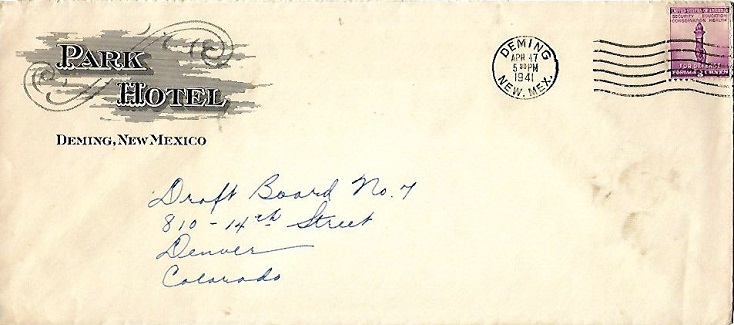 PARK
HOTEL
DEMING, NEW MEXICO
DEMING
APR 17
5 PM
1941
NEW. MEX.
UNITED STATES OF AMERICA
SECURITY EDUCATION
CONSERVATION HEALTH
FOR DEFENSE
POSTAGE 3 CENTS
Draft Board No. 7
810 - 14th Street
Denver
Colorado